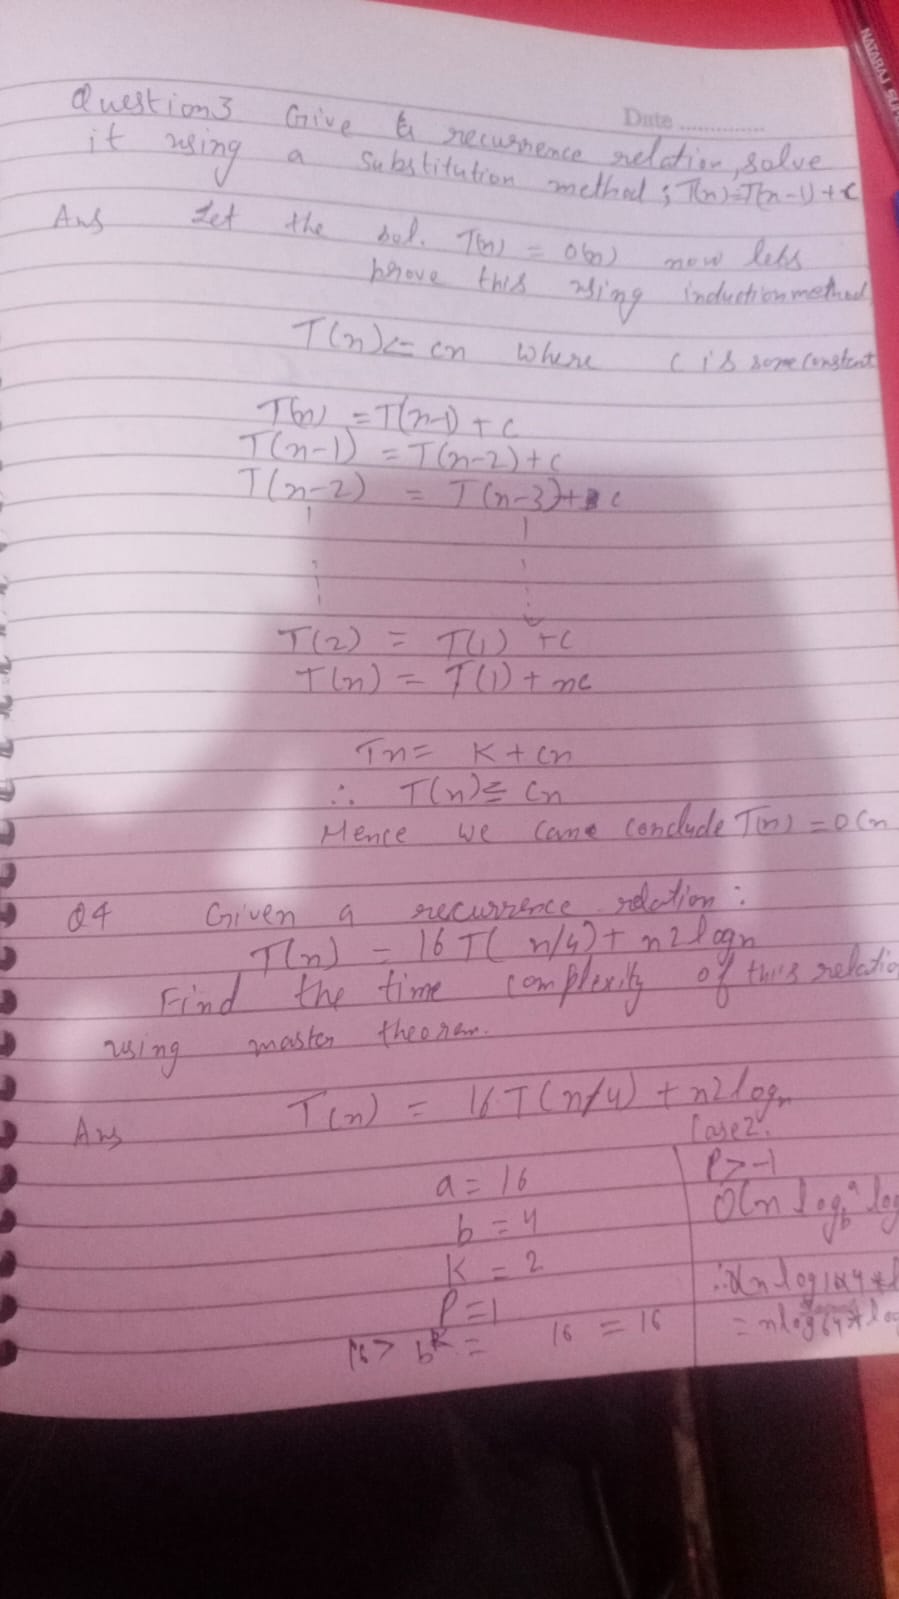 NATARAJ
Date ..............
Question3 Give a recurrence relation, solve
it using a substitution method ; T(n)=T(n-1)+c
Ans Let the sol. T(n) = O(n) now lets
prove this using induction method
T(n)<= cn where c is some constant
T(n) = T(n-1) + c
T(n-1) = T(n-2)+c
T(n-2) = T(n-3)+ c
T(2) = T(1) +c
T(n) = T(1) + nc
Tn= K + cn
∴ T(n)≤ cn
Hence we came conclude T(n) = O(n
Q4 Given a recurrence relation :
T(n) = 16 T( n/4) + n2logn
Find the time complexity of this relatio
using master theorem.
Ans T(n) = 16 T(n/4) + n2logn
Case2.
a = 16 P>-1
b = 4 O(n log_b^a log
K = 2
P = 1
16 = 16